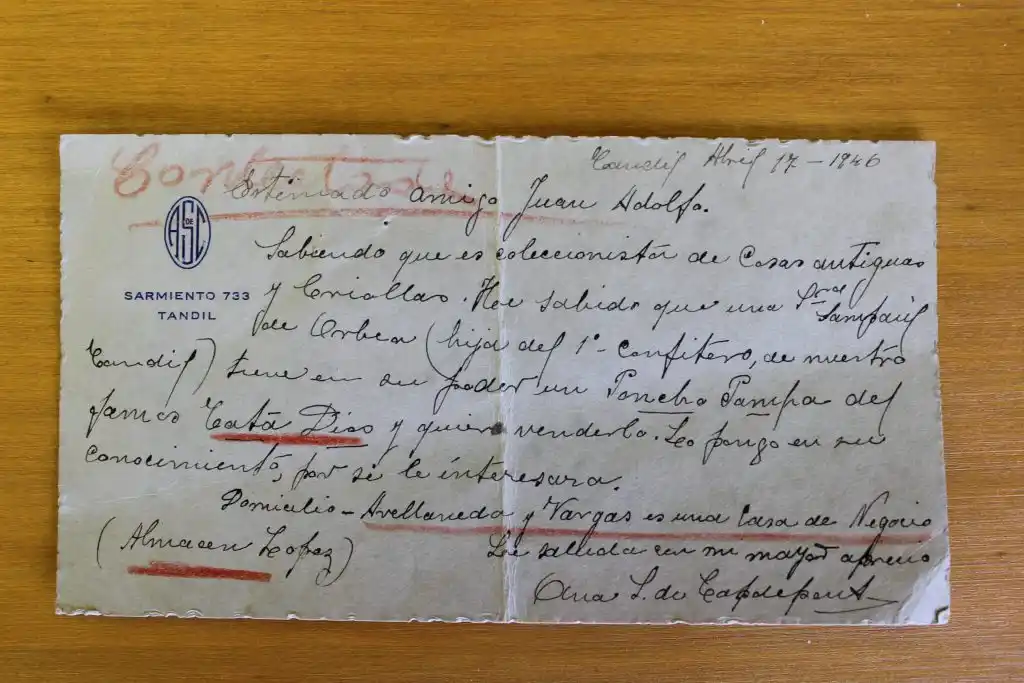 Contestada
Tandil Abril 17-1946
Estimado amigo Juan Adolfo.
A DE SC
SARMIENTO 733
TANDIL
Sabiendo que es coleccionista de Cosas antiguas
y Criollas. He sabido que una Sra
de Orbea (hija del 1º- Confitero, de nuestro
Tandil) tiene en su poder un Poncho Pampa del
famoso Tatá Dios y quiere venderlo. Lo pongo en su
conocimiento, por si le interesara.
Domicilio - Avellaneda y Vargas es una Casa de Negocio
(Almacen Lopez)
Lo saluda con mi mayor aprecio
Ana S. de Capdepont